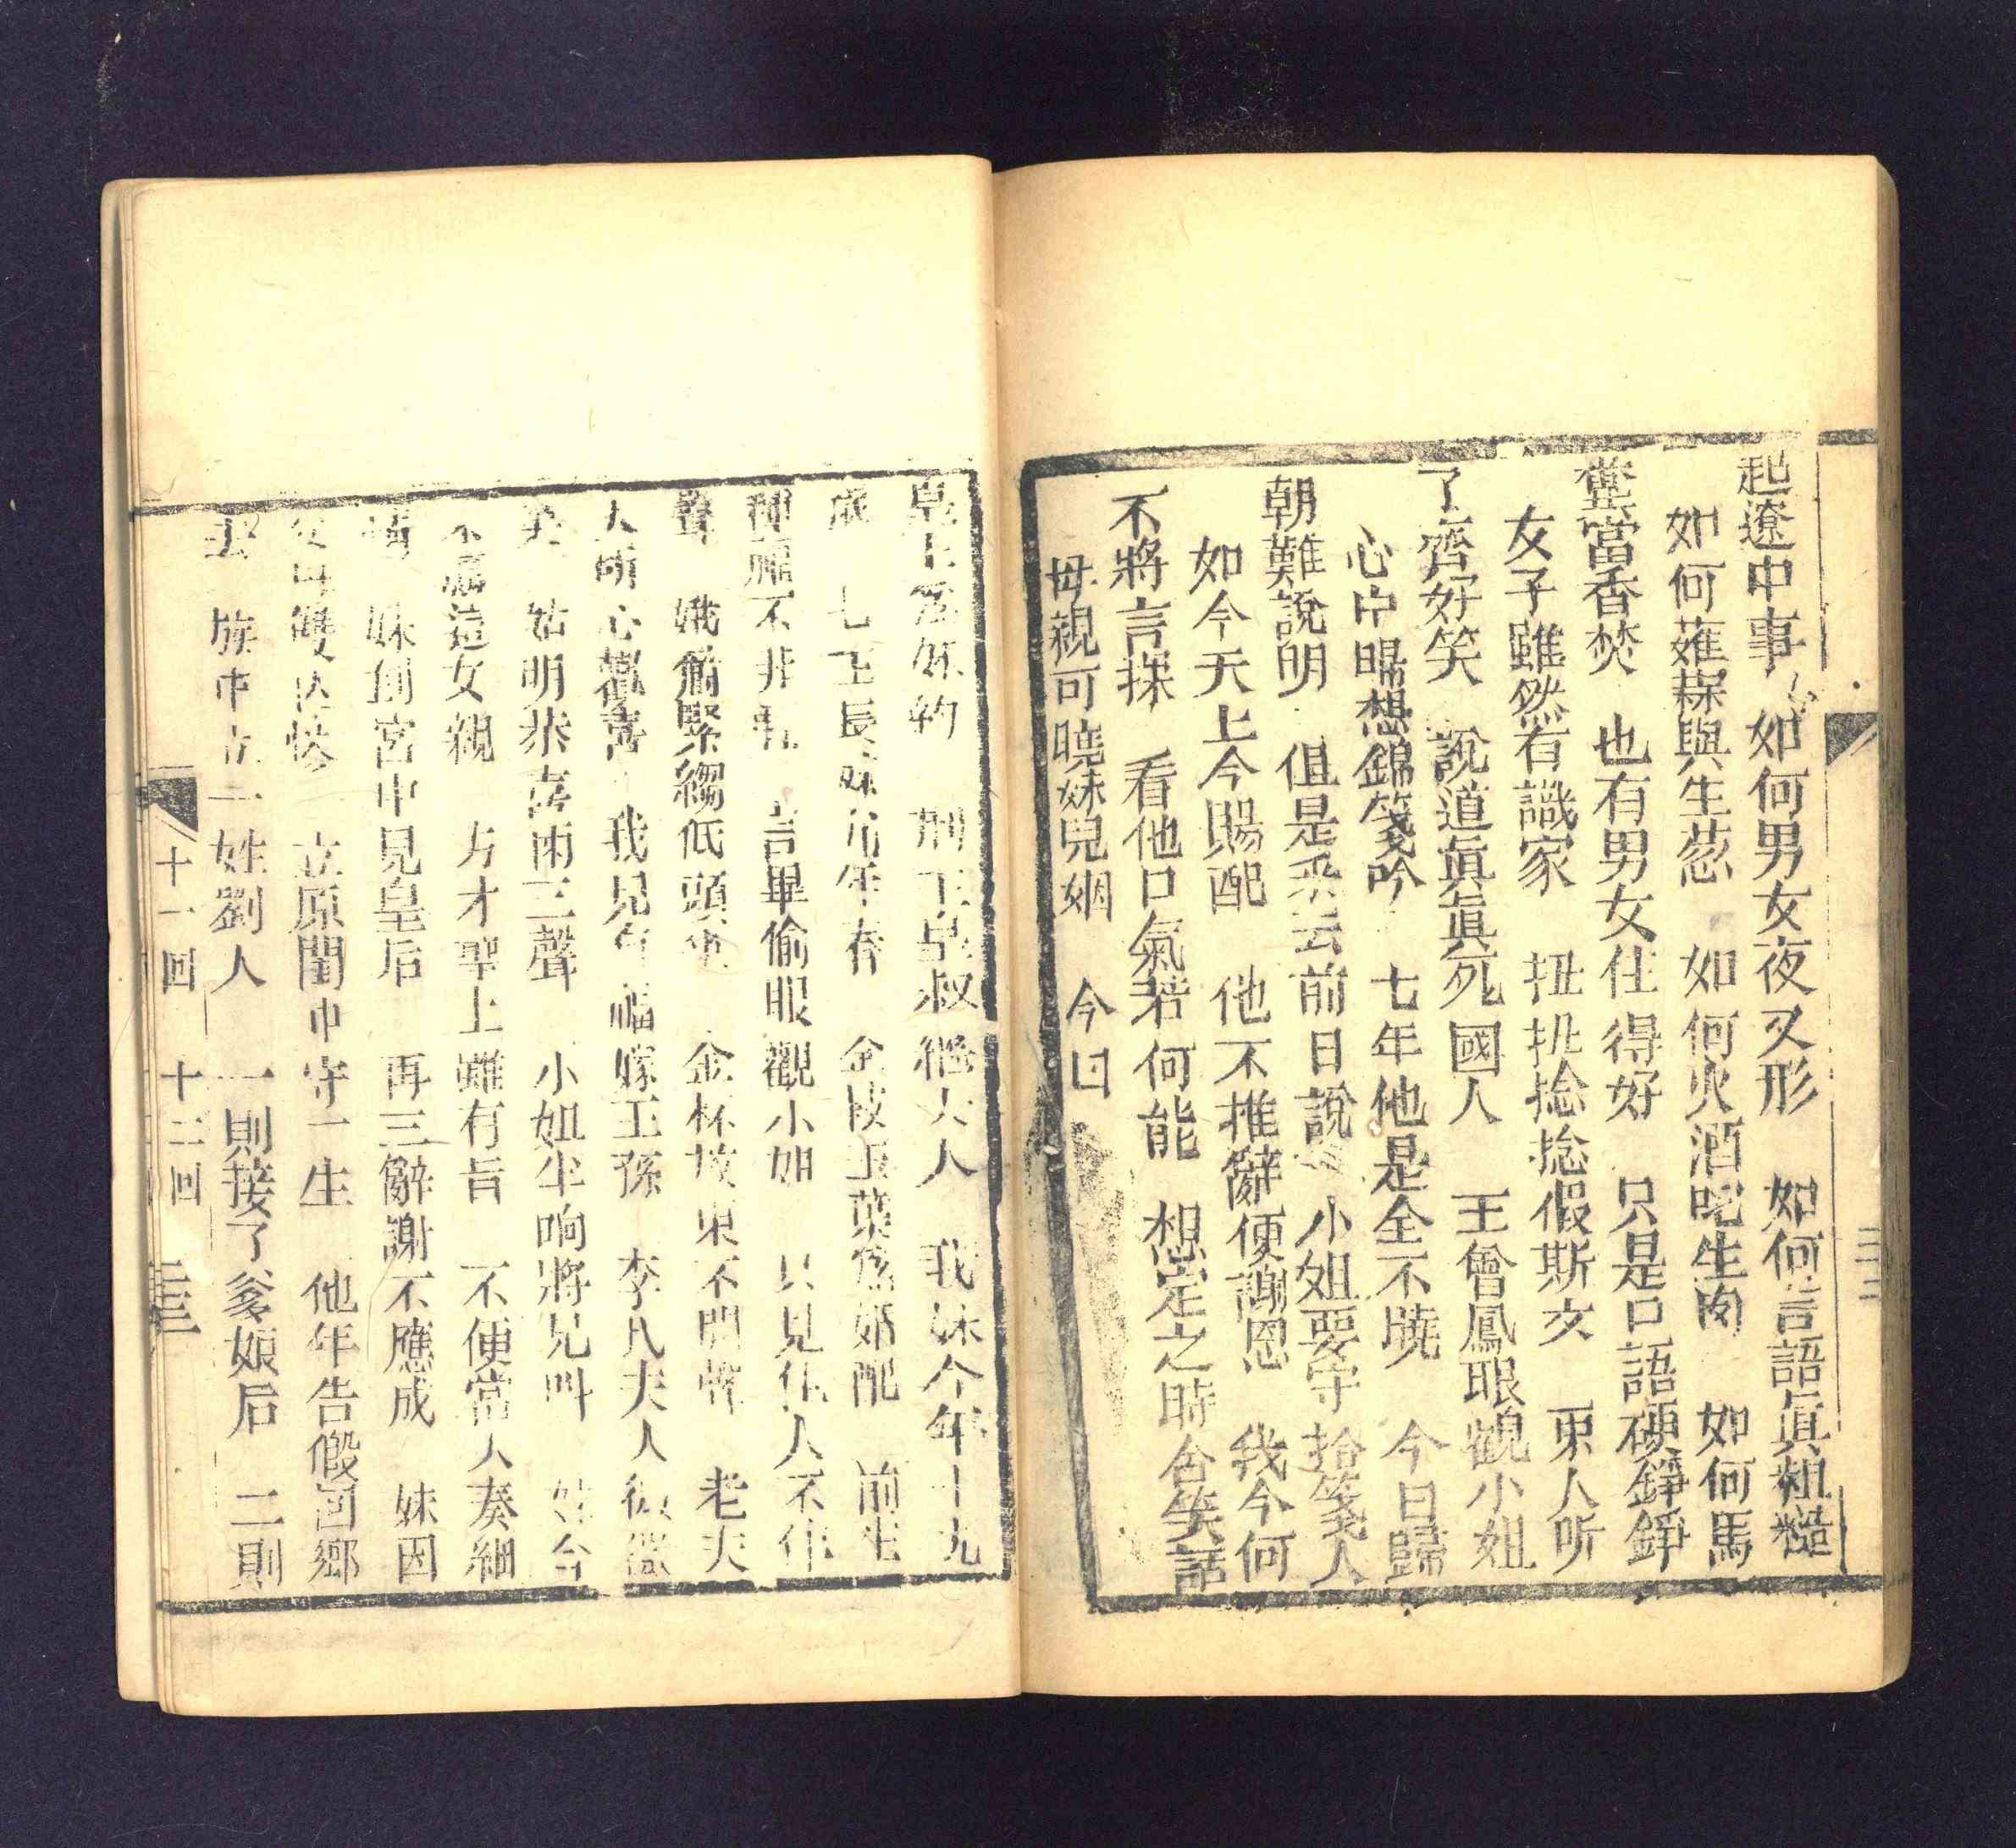 起遼中事 如何男女夜叉形 如何言語眞粗糙
如何薤蒜與生葱 如何火酒吃生肉 如何馬
糞當香焚 也有男女住得好 只是口語硬錚錚
友子雖然有識家 扭扭捻捻假斯文 衆人听
了齊好笑 說道眞眞死國人 王曾鳳眼觀小姐
心中暘想錦箋吟 七年他是全不曉 今日歸
朝難說明 但是乘云前日說 小姐要守拾箋人
如今天上今賜配 他不推辭便謝恩 我今何
不將言探 看他口氣若何能 想定之時含笑話
毋親可曉妹兒姻 今日
皇上爲妹約 荊王皇叔繼夫人 我妹今年十九
歲 七王長妹九年春 金枝玉葉爲婚配 前生
言畢偷眼觀小姐 只見佳人不作
聲 娥眉緊縐低頭坐 金杯放東不開聲 老夫
人聞心歡喜 我兒有福嫁王孫 李氏夫人微微
笑 姑明恭喜兩三聲 小姐半晌將兄叫
女親 方才聖上雖有旨 不便當人奏細
情 妹到宮中見皇后 再三辭謝不應成 妹因
父母雙 立原閨中守一生 他年告假回鄉
去 族中立一姓劉人 一則接了爹娘后 二則
十一回 十二回 三三